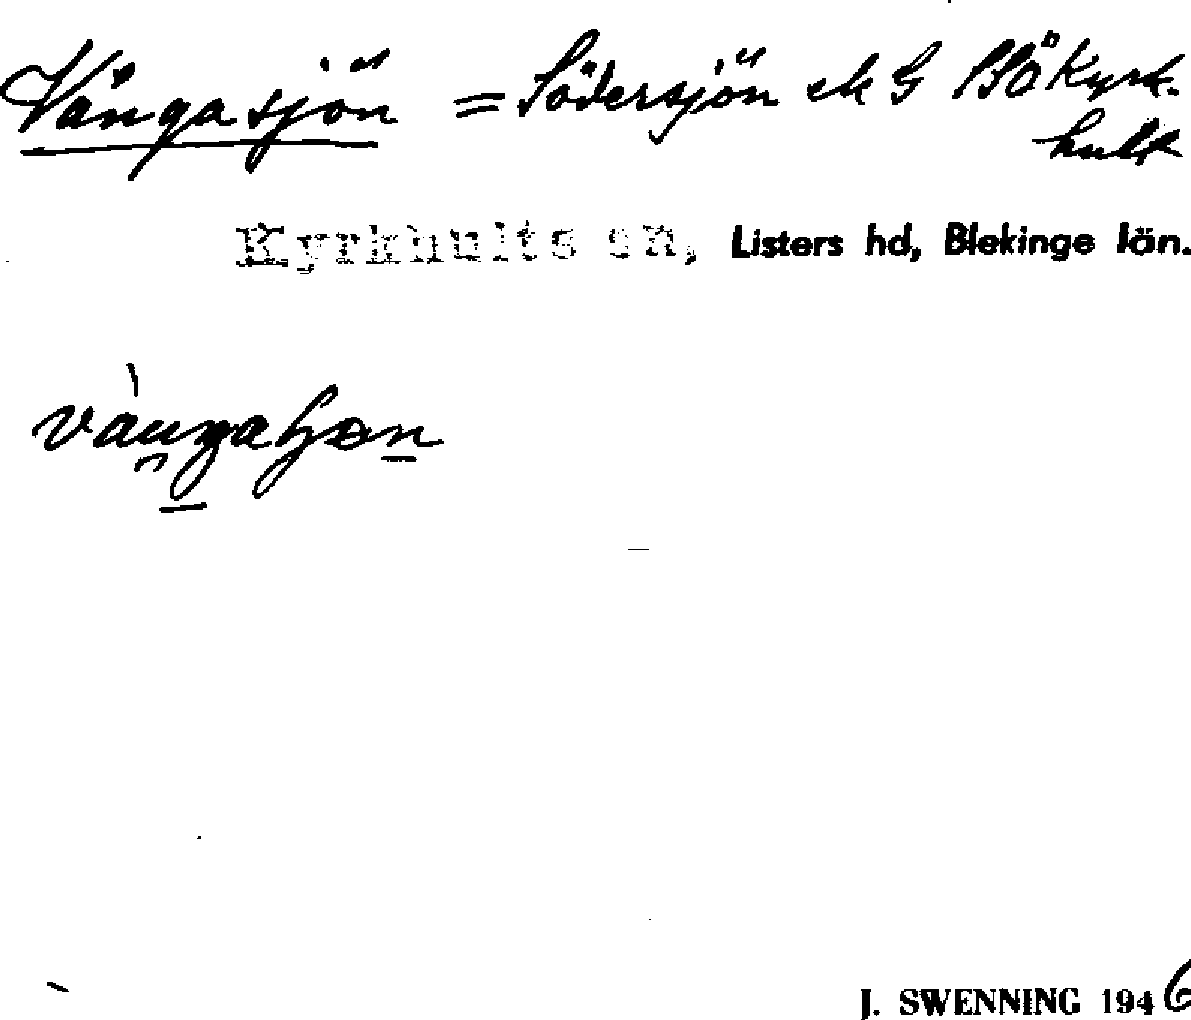 Vångasjön = Södersjön ek G Blö Kyrk-
hult
Kyrkhults sn, Listers hd, Blekinge län.
J. SWENNING 1946